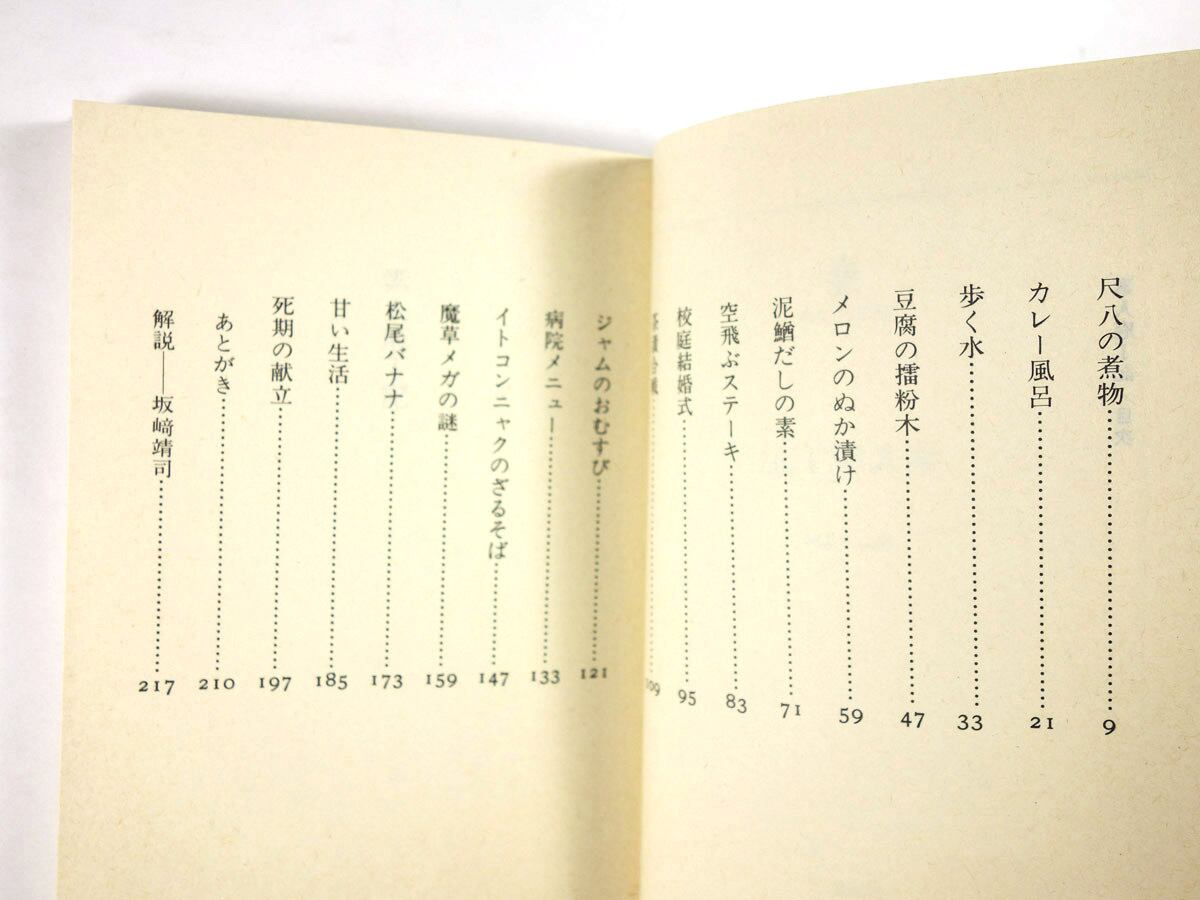 尺八の煮物……9
カレー風呂……21
歩く水……33
豆腐の擂粉木……47
メロンのぬか漬け……59
泥鰌だしの素……71
空飛ぶステーキ……83
校庭結婚式……95
……109
ジャムのおむすび……121
病院メニュー……133
イトコンニャクのざるそば……147
魔草メガの謎……159
松尾バナナ……173
甘い生活……185
死期の献立……197
あとがき……210
解説──坂﨑靖司……217